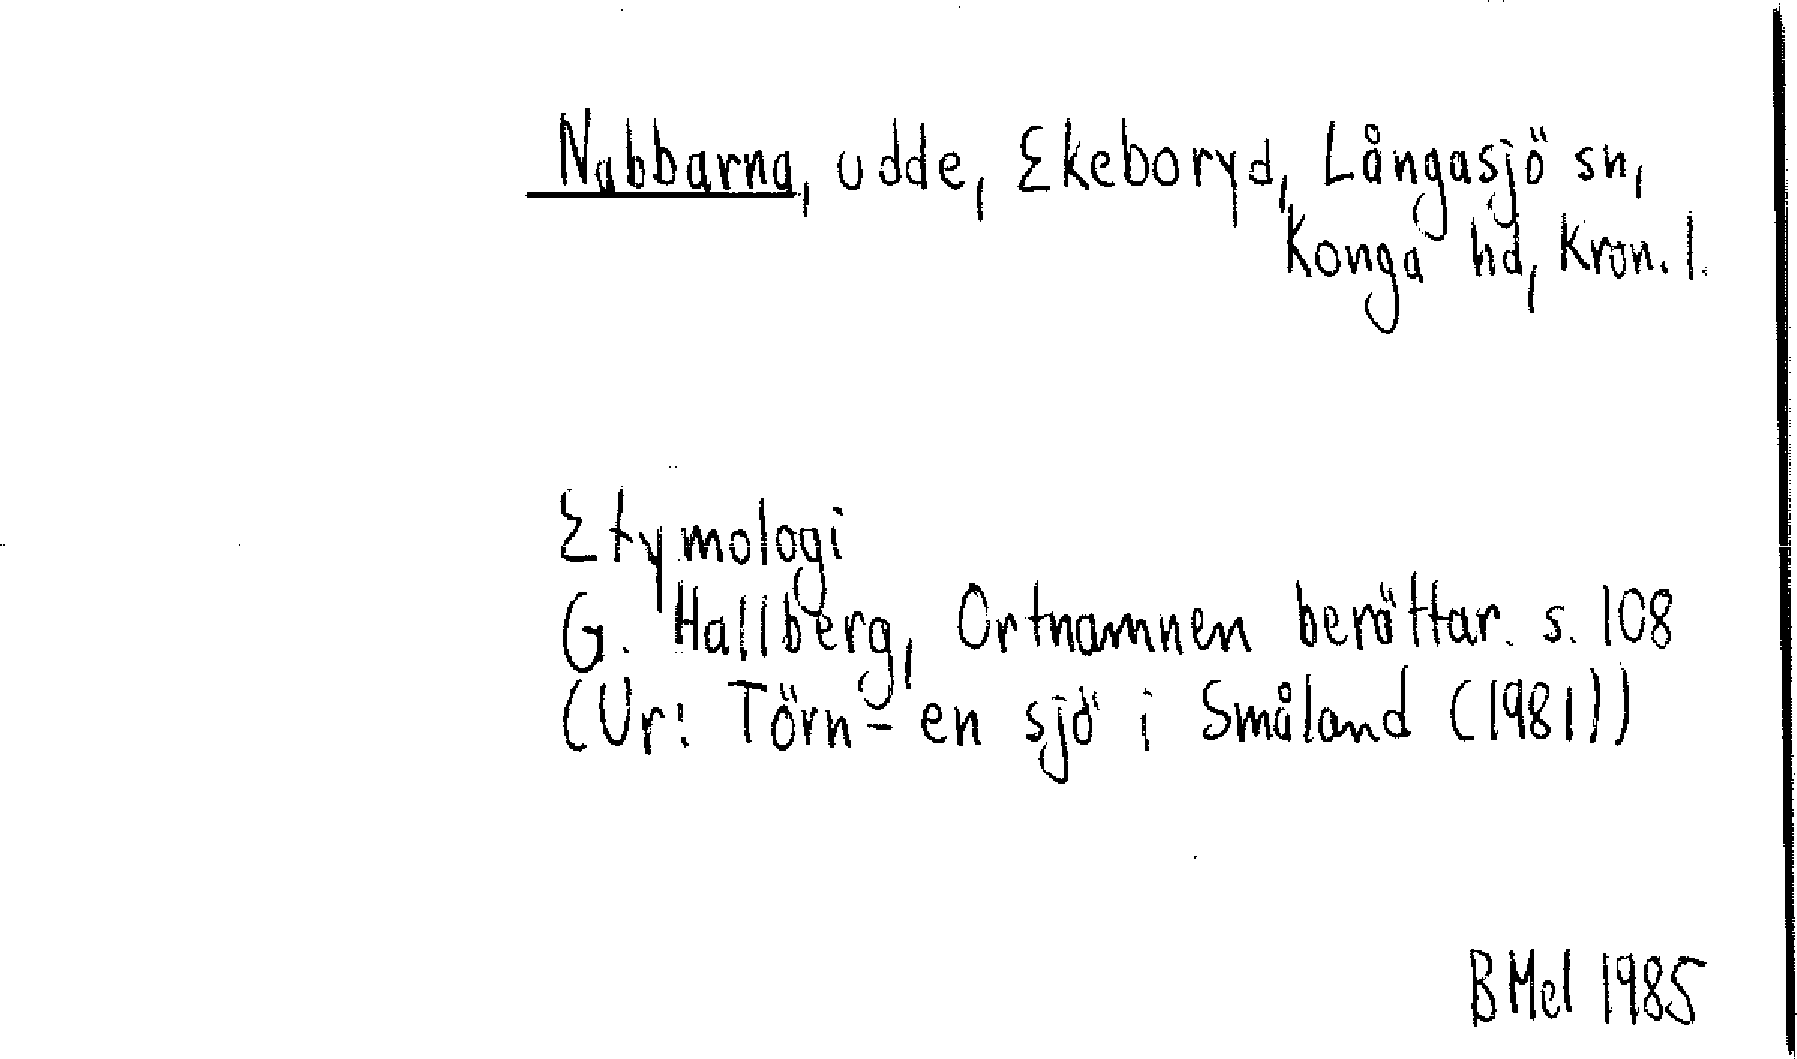 Nabbarna, udde, Ekeboryd, Långasjö sn,
Konga hd, Kron. l.
Etymologi
G. Hallberg, Ortnamnen berättar. s. 108
(Ur: Törn - en sjö i Småland (1981))
BMel 1985